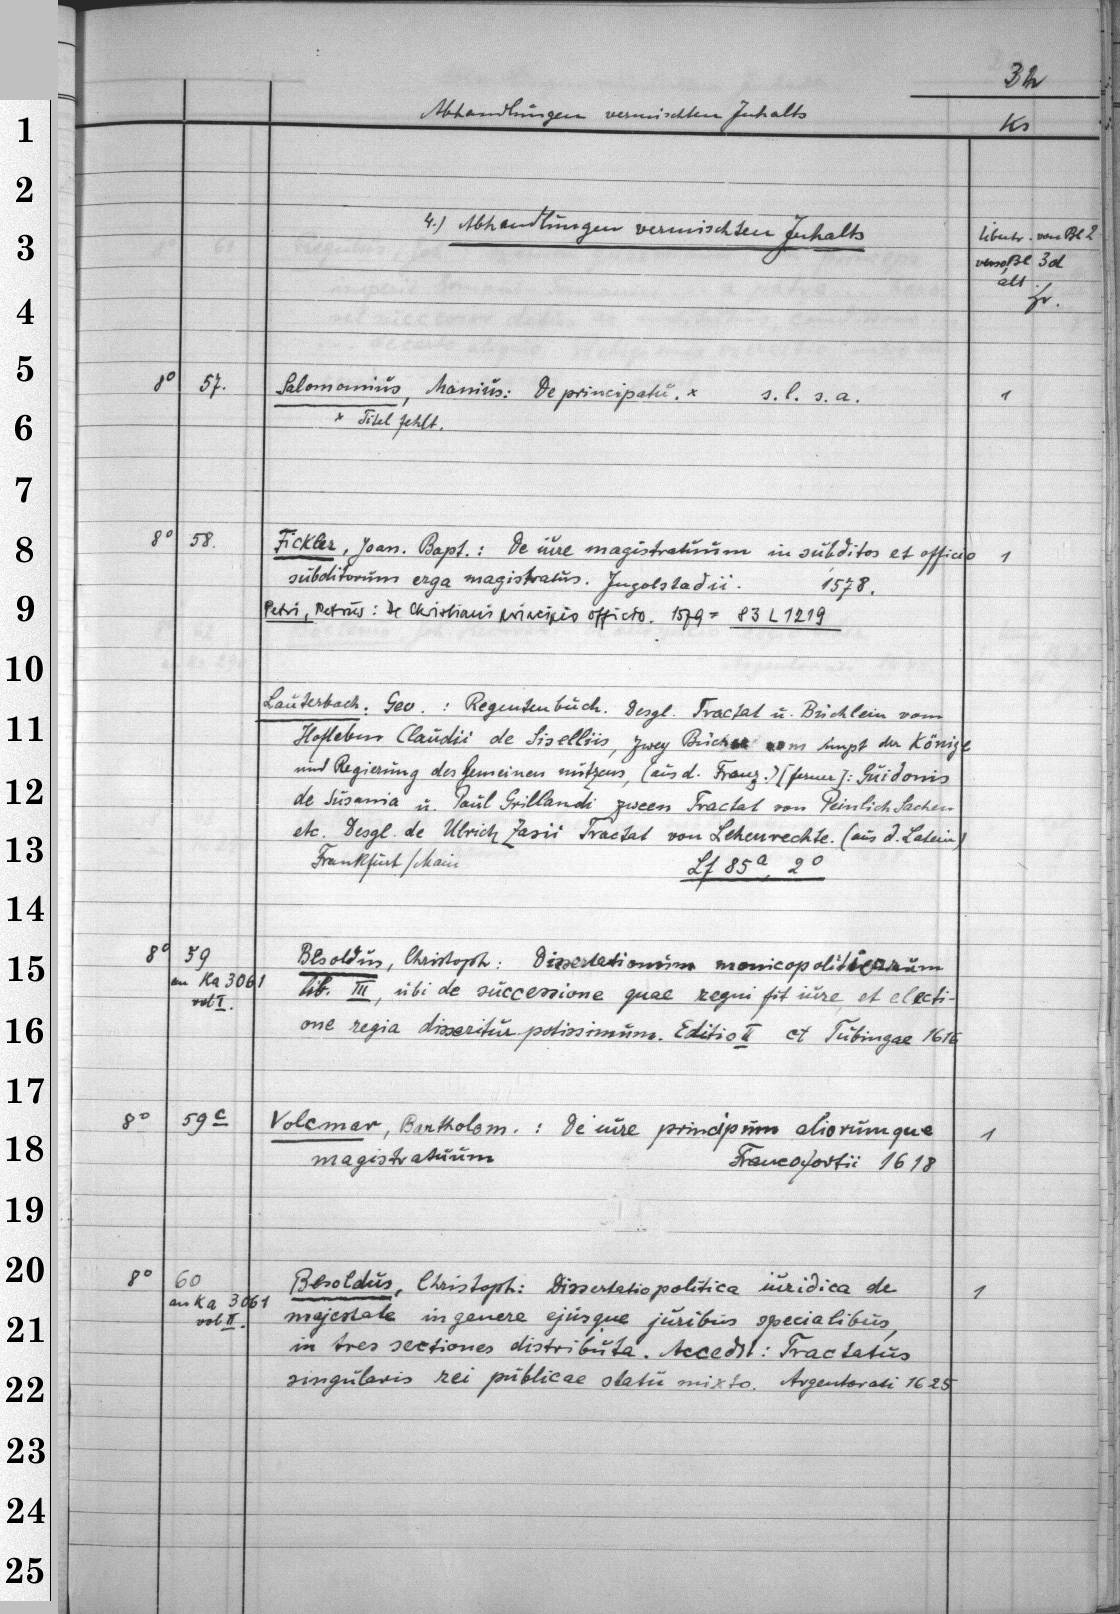 3h
Abhandlungen vermischten Inhalts
Ks
1
2
4.) Abhandlungen vermischten Inhalts
3
von Bl 2
verso, Bl 3d
alt
4
5
8° 57. Salomonius, Marius: De principatu. x s. l. s. a. 1
6
x Titel fehlt.
7
8
8° 58. Fickler, Joan. Bapt.: De iure magistratuum in subditos et officio 1
subditorum erga magistratus. Ingolstadii. 1578.
9
Petri, Petrus: De Christiani principis officio. 1579 = 83 L 1219
10
11
Lauterbach, Geo. : Regentenbuch. Desgl. Tractat u. Büchlein vom
Hofleben Claudii de Siselliis, zwey Bücher vom Ampt der Könige
und Regierung des Gemeinen nutzens, (aus d. Franz.) [ferner]: Guidonis
12
de Susania u. Paul Grillandi zween Tractat von Peinlich Sachen
etc. Desgl. de Ulrich Zasii Tractat von Lehenrechte. (aus d. Latein)
13
Frankfurt/Main Lf 85a, 2°
14
15
8° 59 Besoldus, Christoph: Dissertationum monicopoliticarum
an Ka 3061
vol I.
lib. III, ubi de successione quae regni fit iure, et electi-
16
one regia disseritur potissimum. Editio II ct Tubingae 1616
17
8° 59 c Volcmar, Bartholom. : De iure principum aliorumque 1
18
magistratuum Francofortii 1618
19
20
8° 60 Besoldus, Christoph: Dissertatio politica iuridica de 1
an Ka 3061
vol II.
21
majestate in genere ejusque juribus specialibus,
in tres sectiones distributa. Accedit: Tractatus
22
singularis rei publicae statu mixto. Argentorati 1625
23
24
25